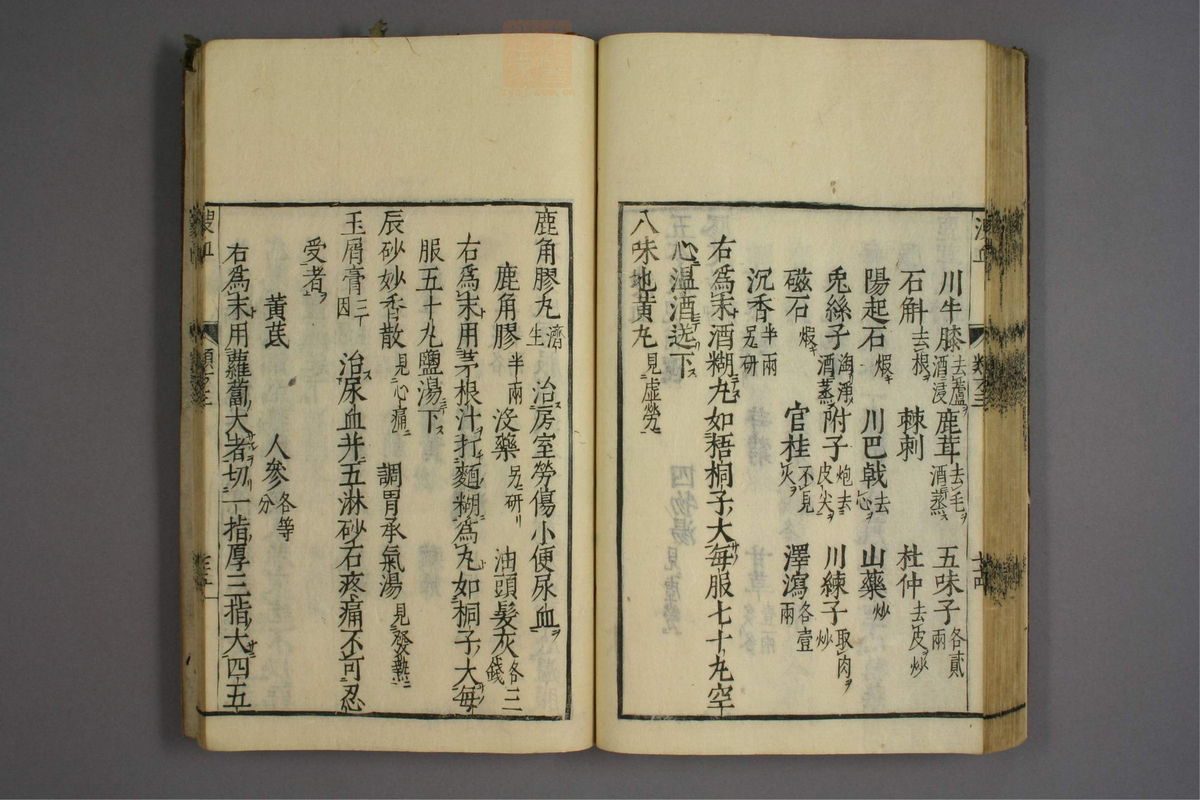 川牛膝去蘆酒浸 鹿茸去毛酒蒸 五味子各貳兩
石斛去根 棘刺 杜仲去皮炒
陽起石煆 川巴戟去心 山藥炒
兎絲子淘淨酒蒸 附子炮去皮尖 川練子取肉炒
磁石煆 官桂不見火 澤瀉各壹兩
沉香半兩另研
右爲末酒糊丸如梧桐子大每服七十丸空
心溫酒送下
八味地黃丸見虛勞
鹿角膠丸濟生 治房室勞傷小便尿血
鹿角膠半兩 沒藥另研 油頭髮灰各三錢
右爲末用茅根汁打麵糊為丸如桐子大每
服五十丸鹽湯下
辰砂妙香散見心痛 調胃承氣湯見發熱
玉屑膏三因 治尿血并五淋砂石疼痛不可忍
受者
黃芪 人參各等分
右爲末用蘿蔔大者切一指厚三指大四五